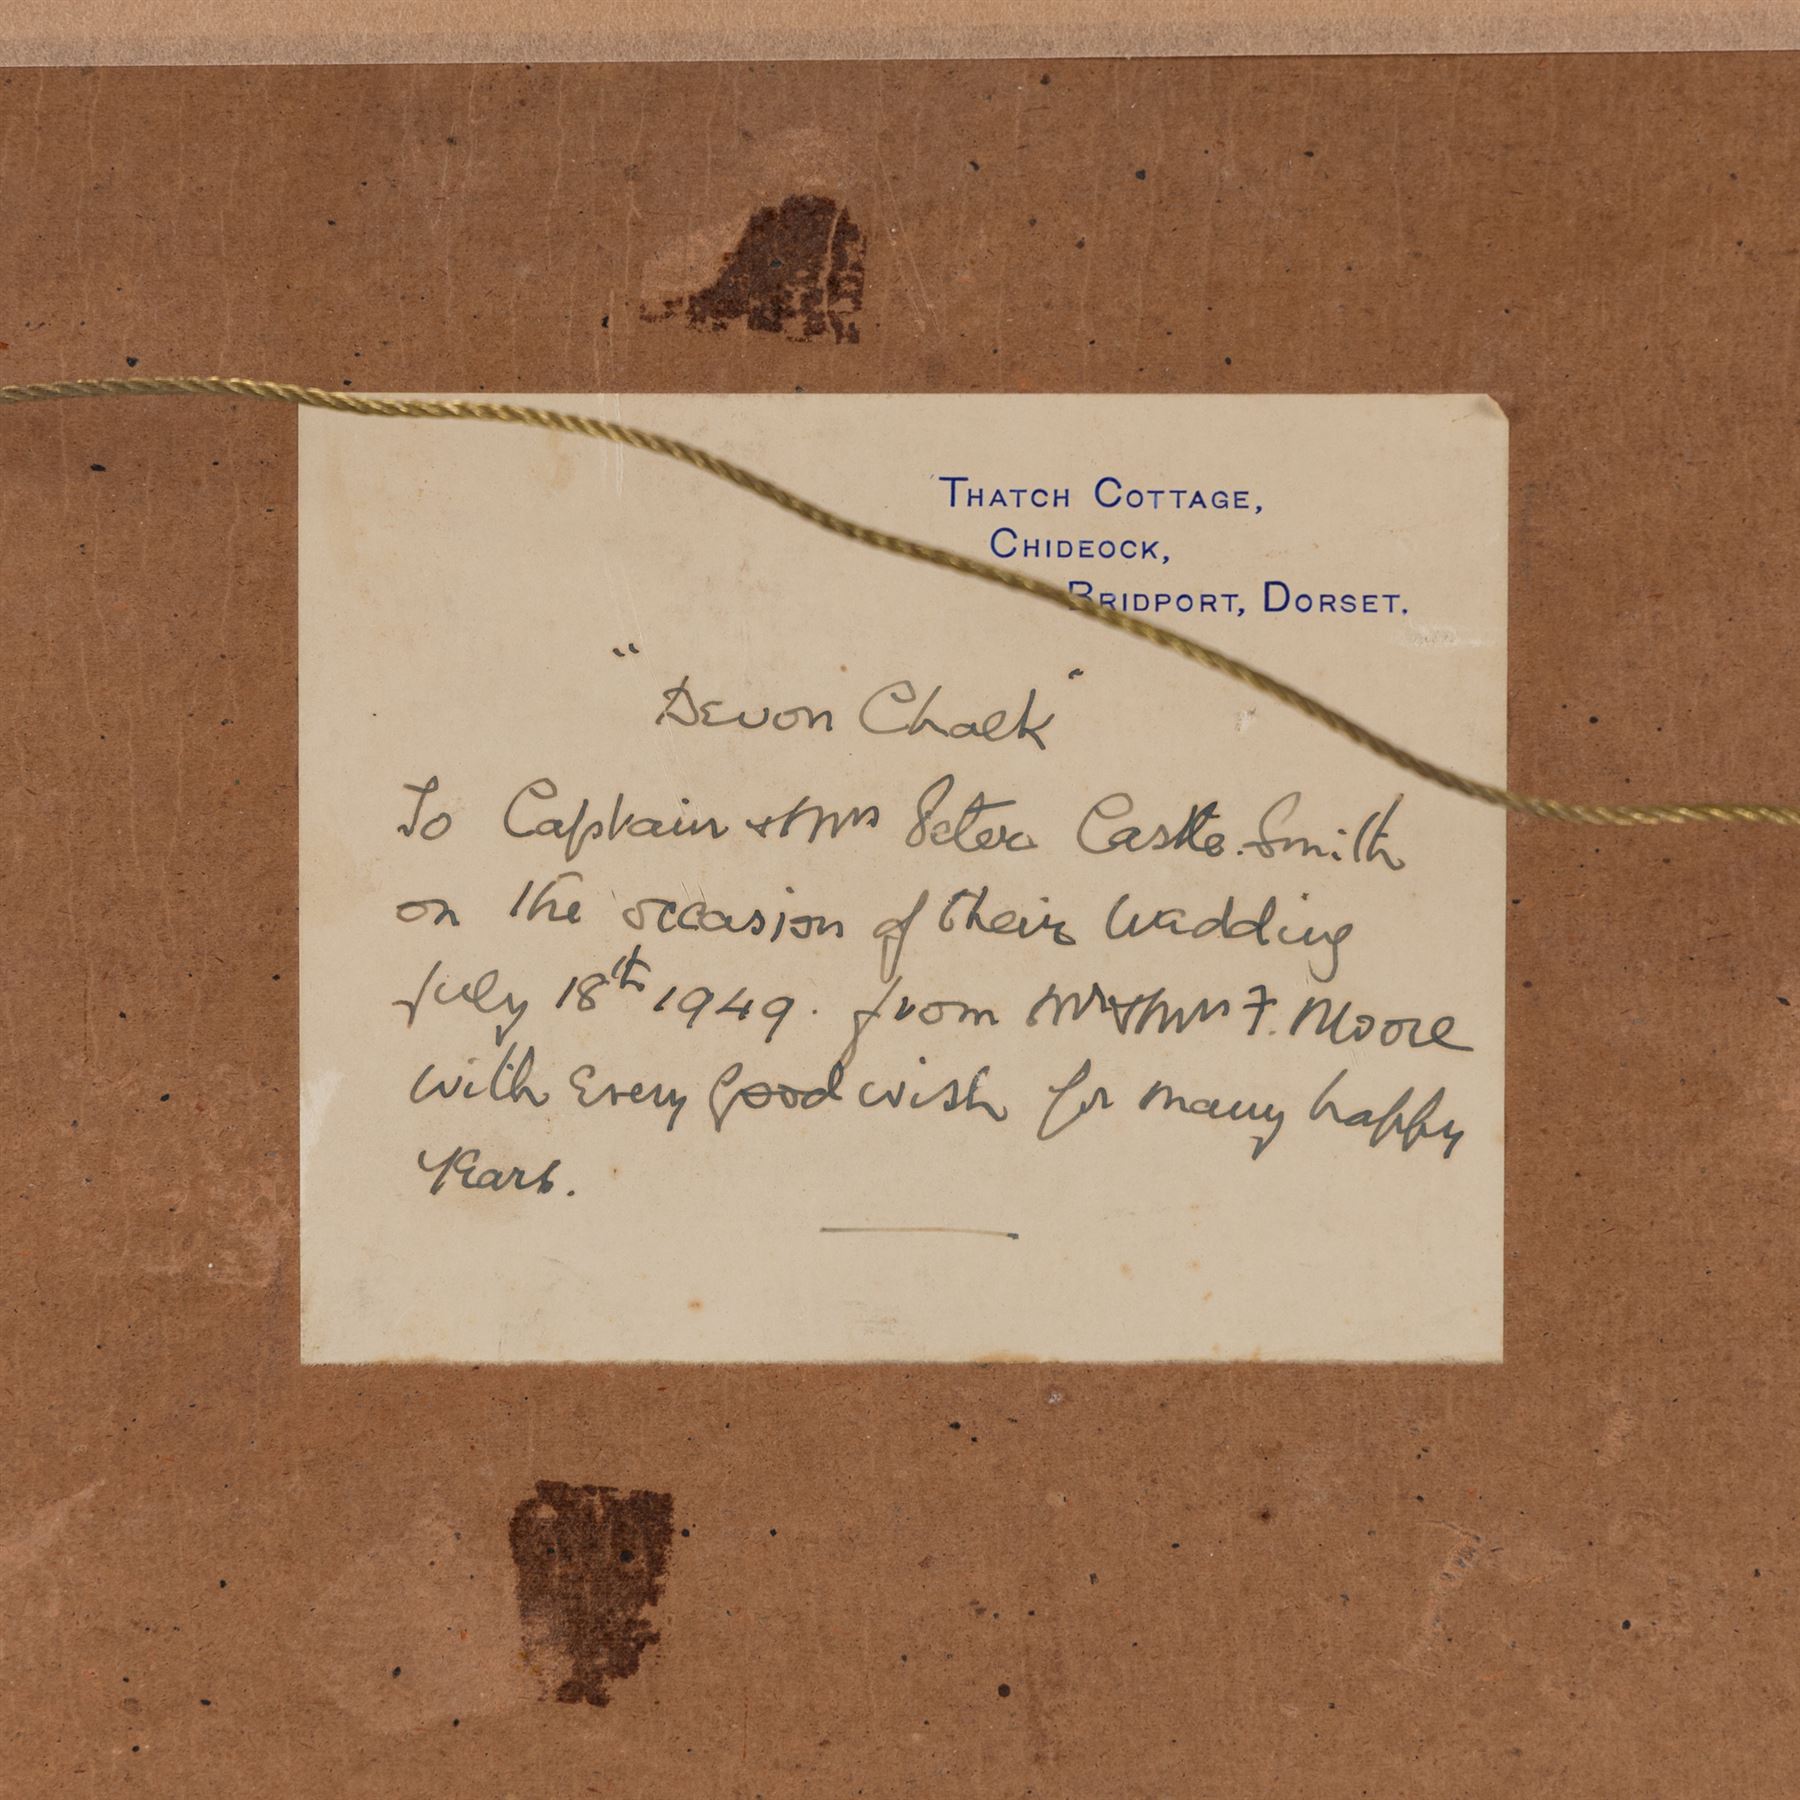 THATCH COTTAGE,
CHIDEOCK,
BRIDPORT, DORSET.
"Devon Chalk"
To Captain & Mrs Peter Castle-Smith
on the occasion of their wedding
July 18th 1949. from Mr & Mrs F. Moore
with Every good wish for many happy
Years.